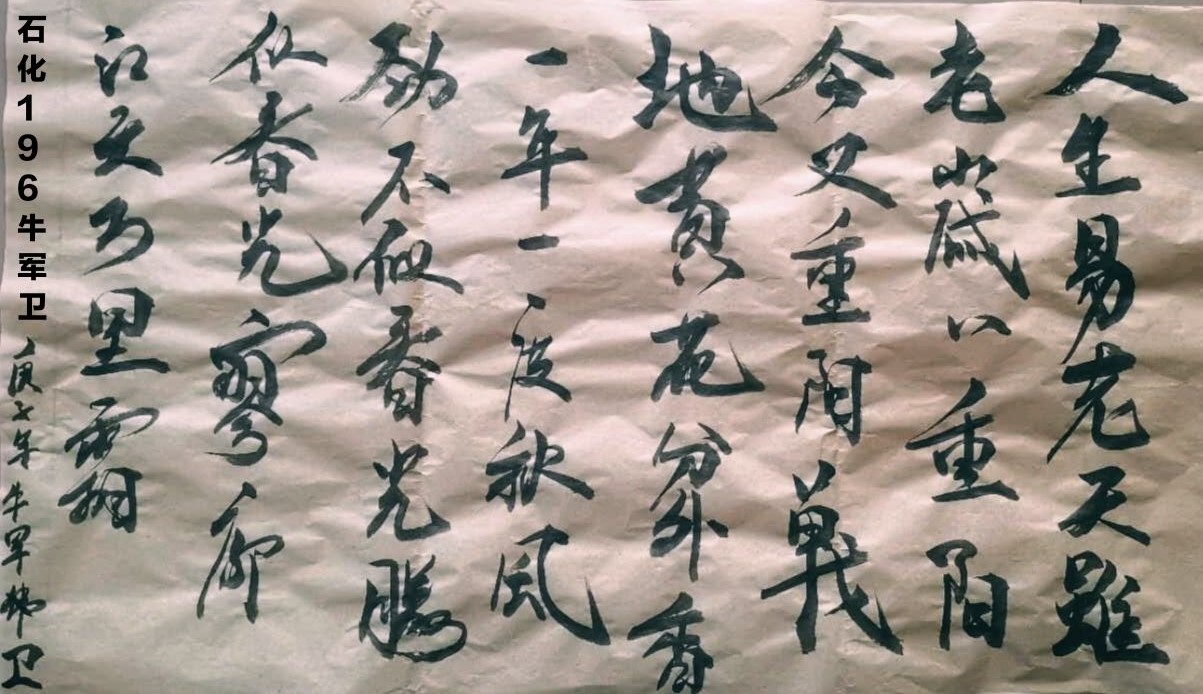 人生易老天難
老歲々重陽
今又重阳戰
地黄花分外香
一年一度秋风
劲不似春光勝
似春光寥廓
江天万里霜
石化196牛军卫
庚子年 牛军卫